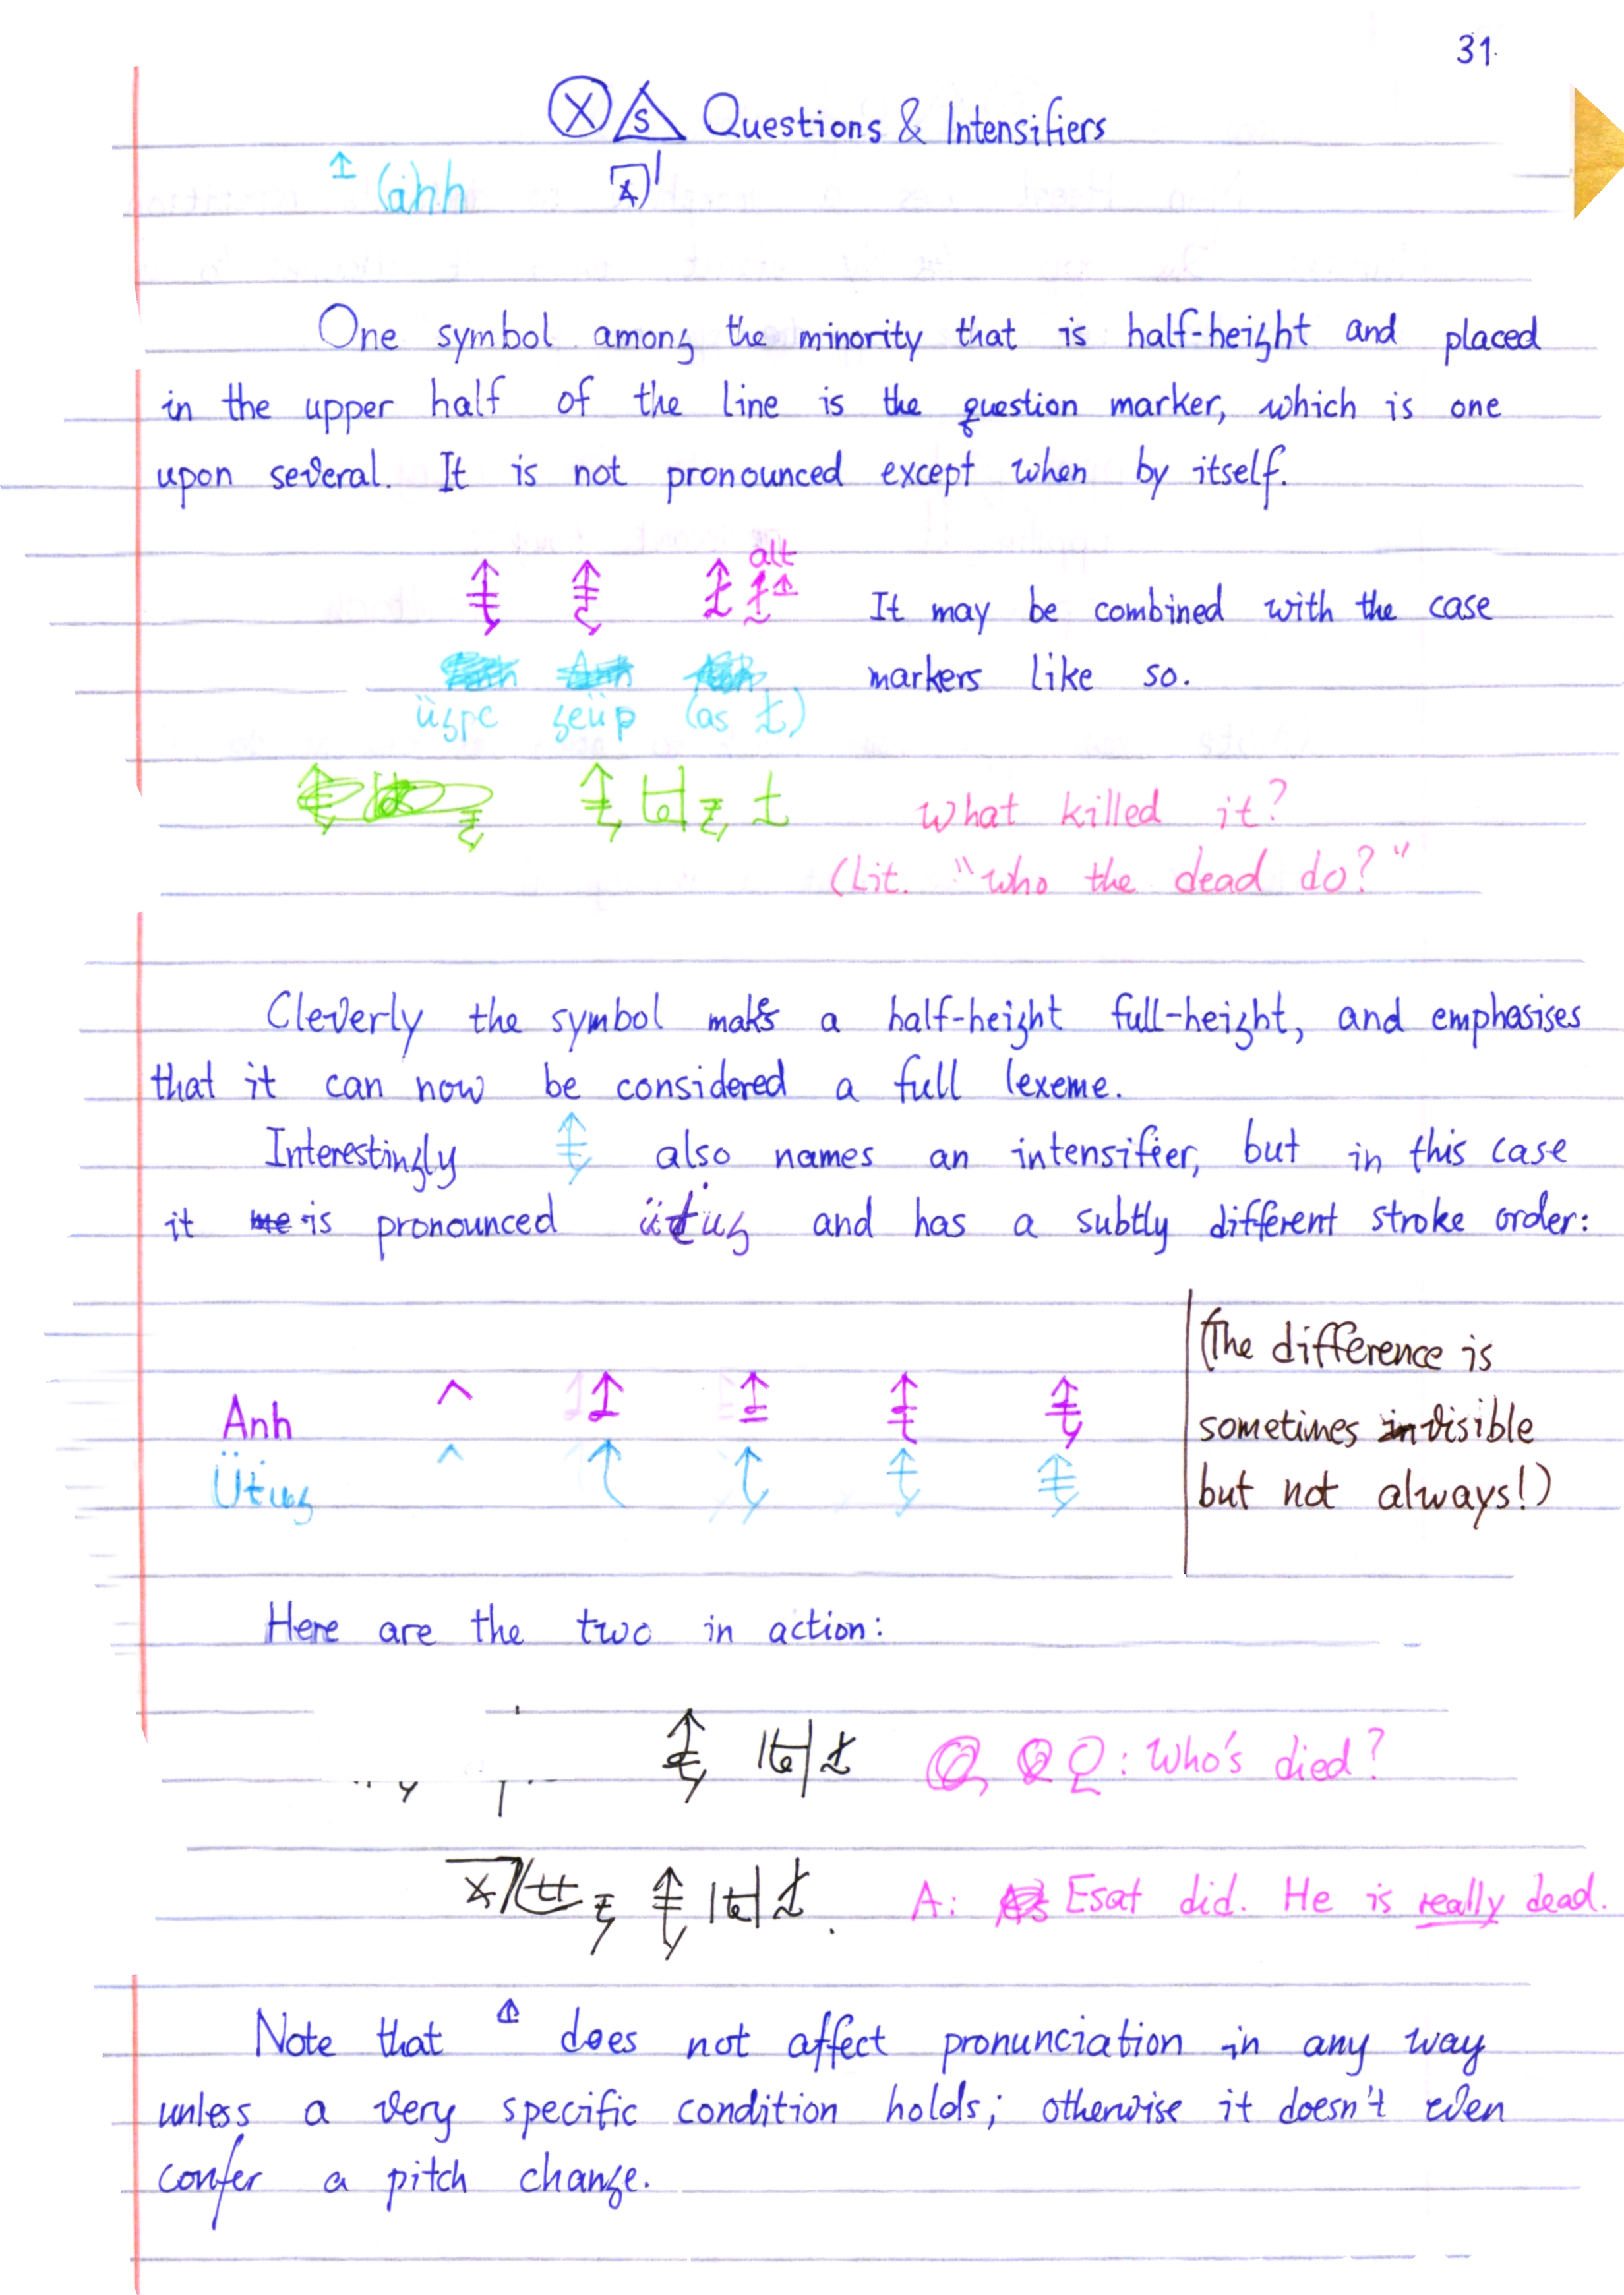 31.
Questions & Intensifiers
(anh
One symbol among the minority that is half-height and placed
in the upper half of the line is the question marker, which is one
upon several. It is not pronounced except when by itself.
alt
It may be combined with the case
markers like so.
üzpc zeüp (as
What killed it?
(Lit. "who the dead do?"
Cleverly the symbol makes a half-height full-height, and emphasises
that it can now be considered a full lexeme.
Interestingly also names an intensifier, but in this case
it is pronounced and has a subtly different stroke order:
(The difference is
Anh
sometimes visible
but not always!)
Here are the two in action:
Q: Who's died?
A: Esat did. He is really dead.
Note that does not affect pronunciation in any way
unless a very specific condition holds; otherwise it doesn't even
confer a pitch change.